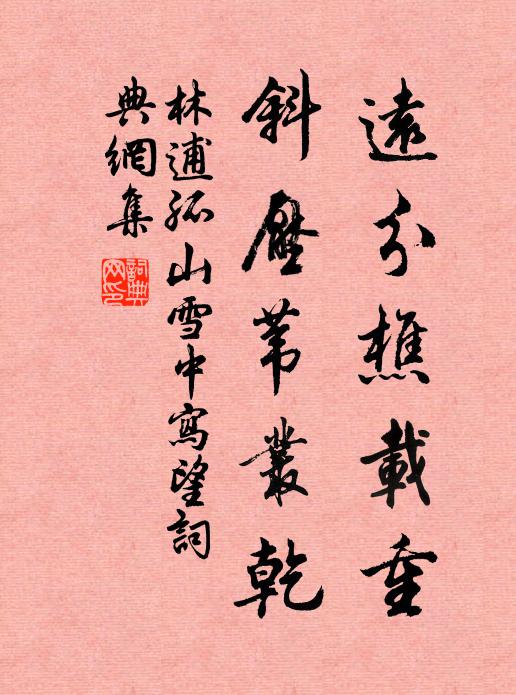 遠分樵載重
斜壓葦叢乾
林逋孤山雪中寫望詞
典網集
詞典網印